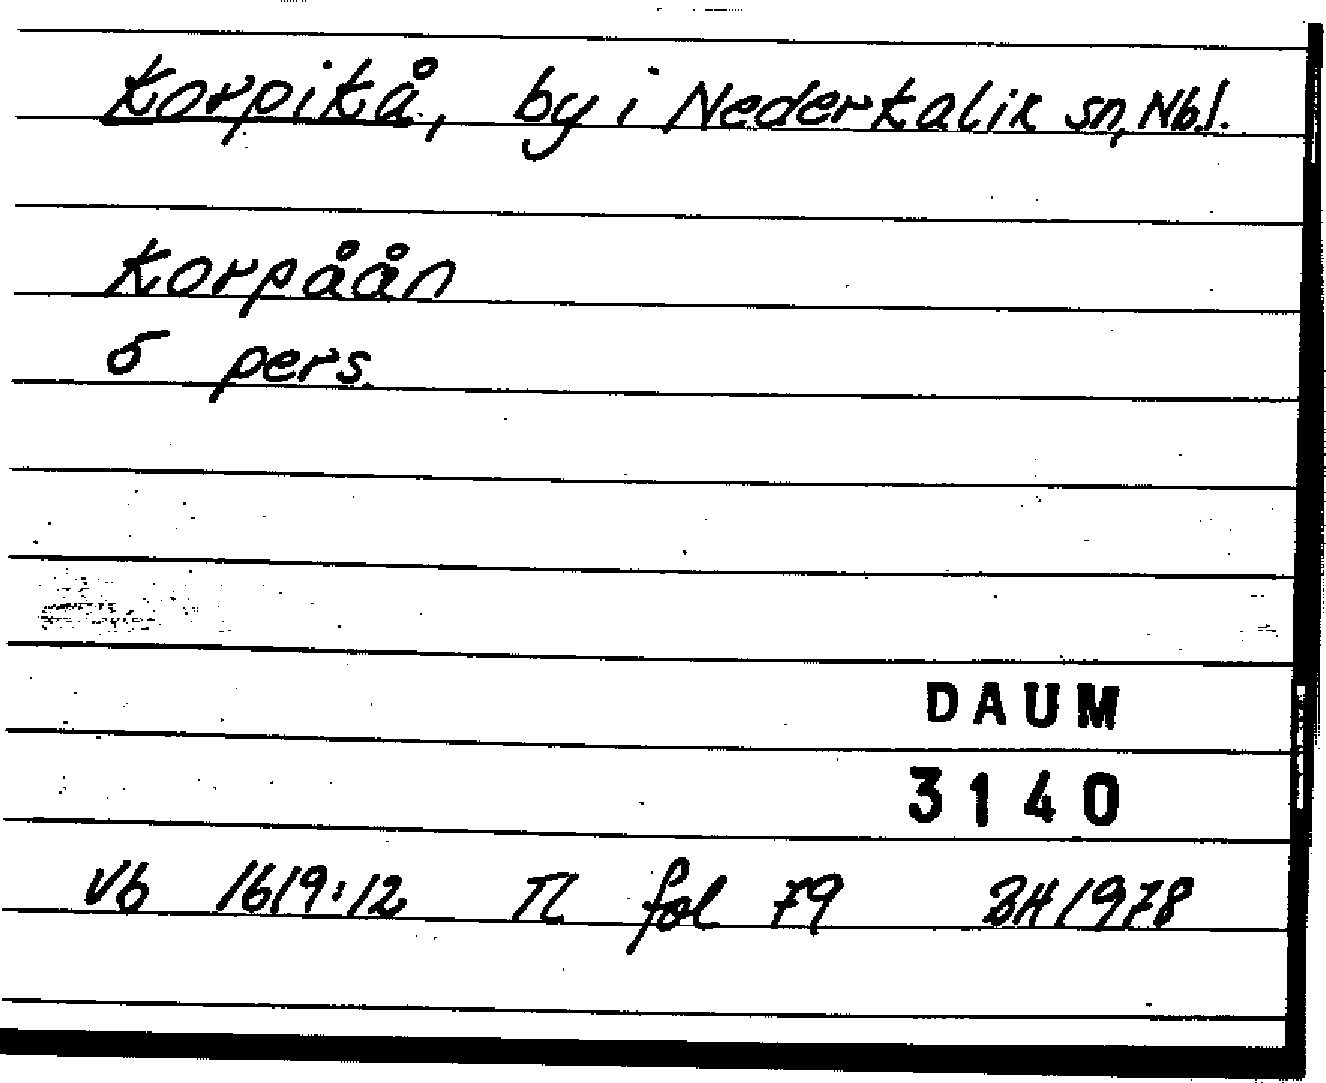 Korpikå, by i Nederkalix sn, Nb.l.
Korpåån
5 pers.
DAUM
3140
Vb 1619:12 TL fol 79 BH 1978